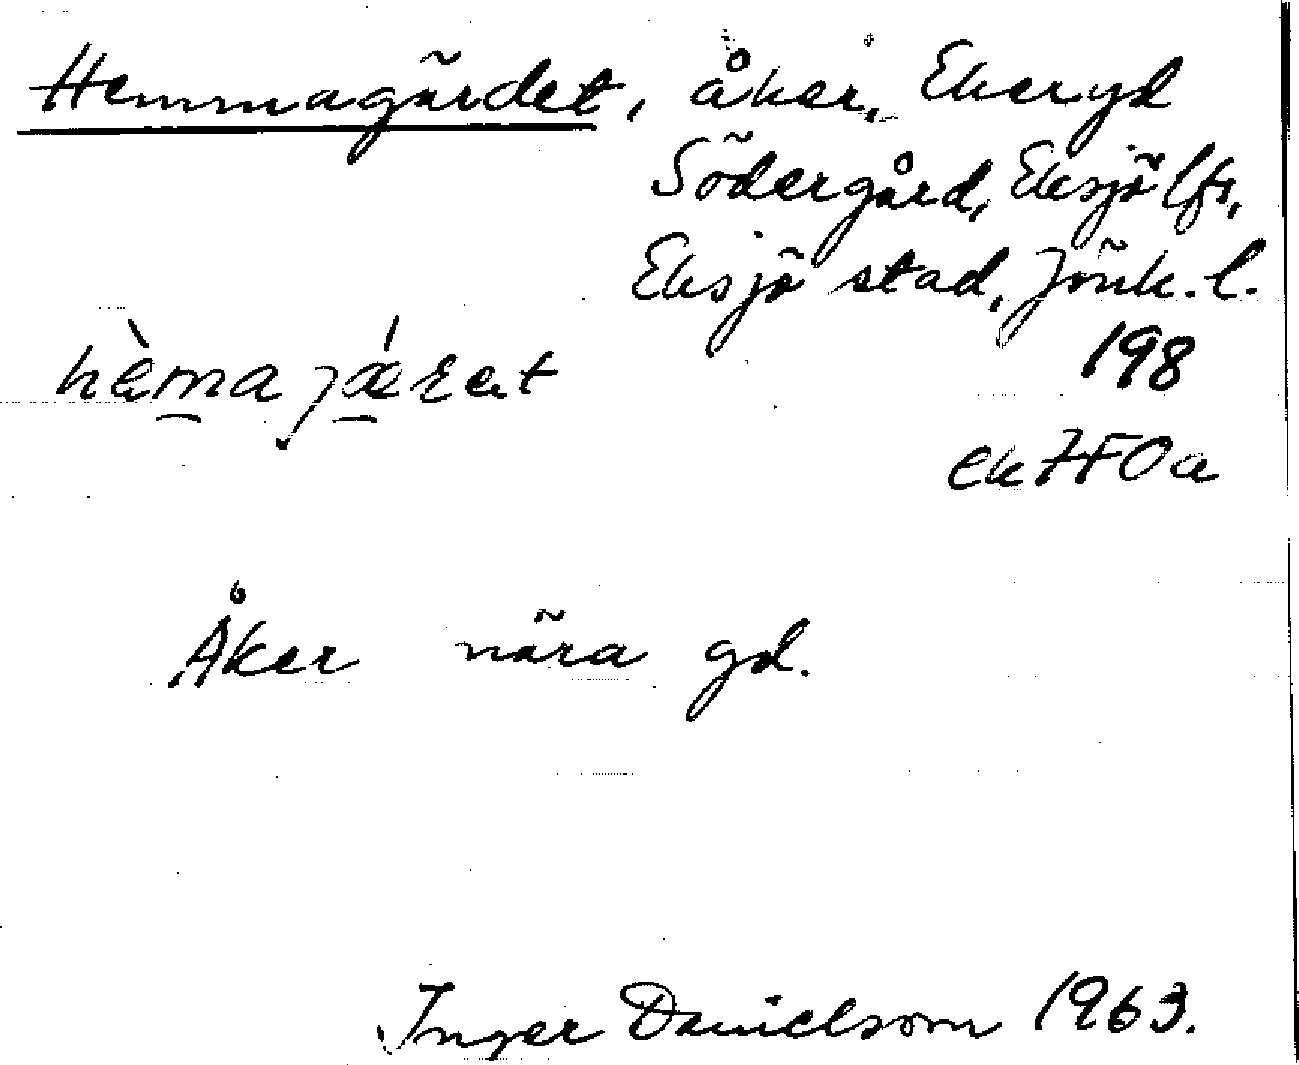 Hemmagärdet, åker, Ekeryd
Södergård, Eksjö lfs,
Eksjö stad, Jönk. l.
hèmajǽret
198
ek 7F0a
Åker nära gd.
Inger Danielsson 1963.